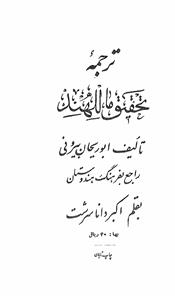 ترجمهٔ
تحقیق ماللهند
تألیف ابوریحان بیرونی
راجع بفرهنگ هندوستان
بقلم اکبر داناسرشت
بها: ۴۰ ریال